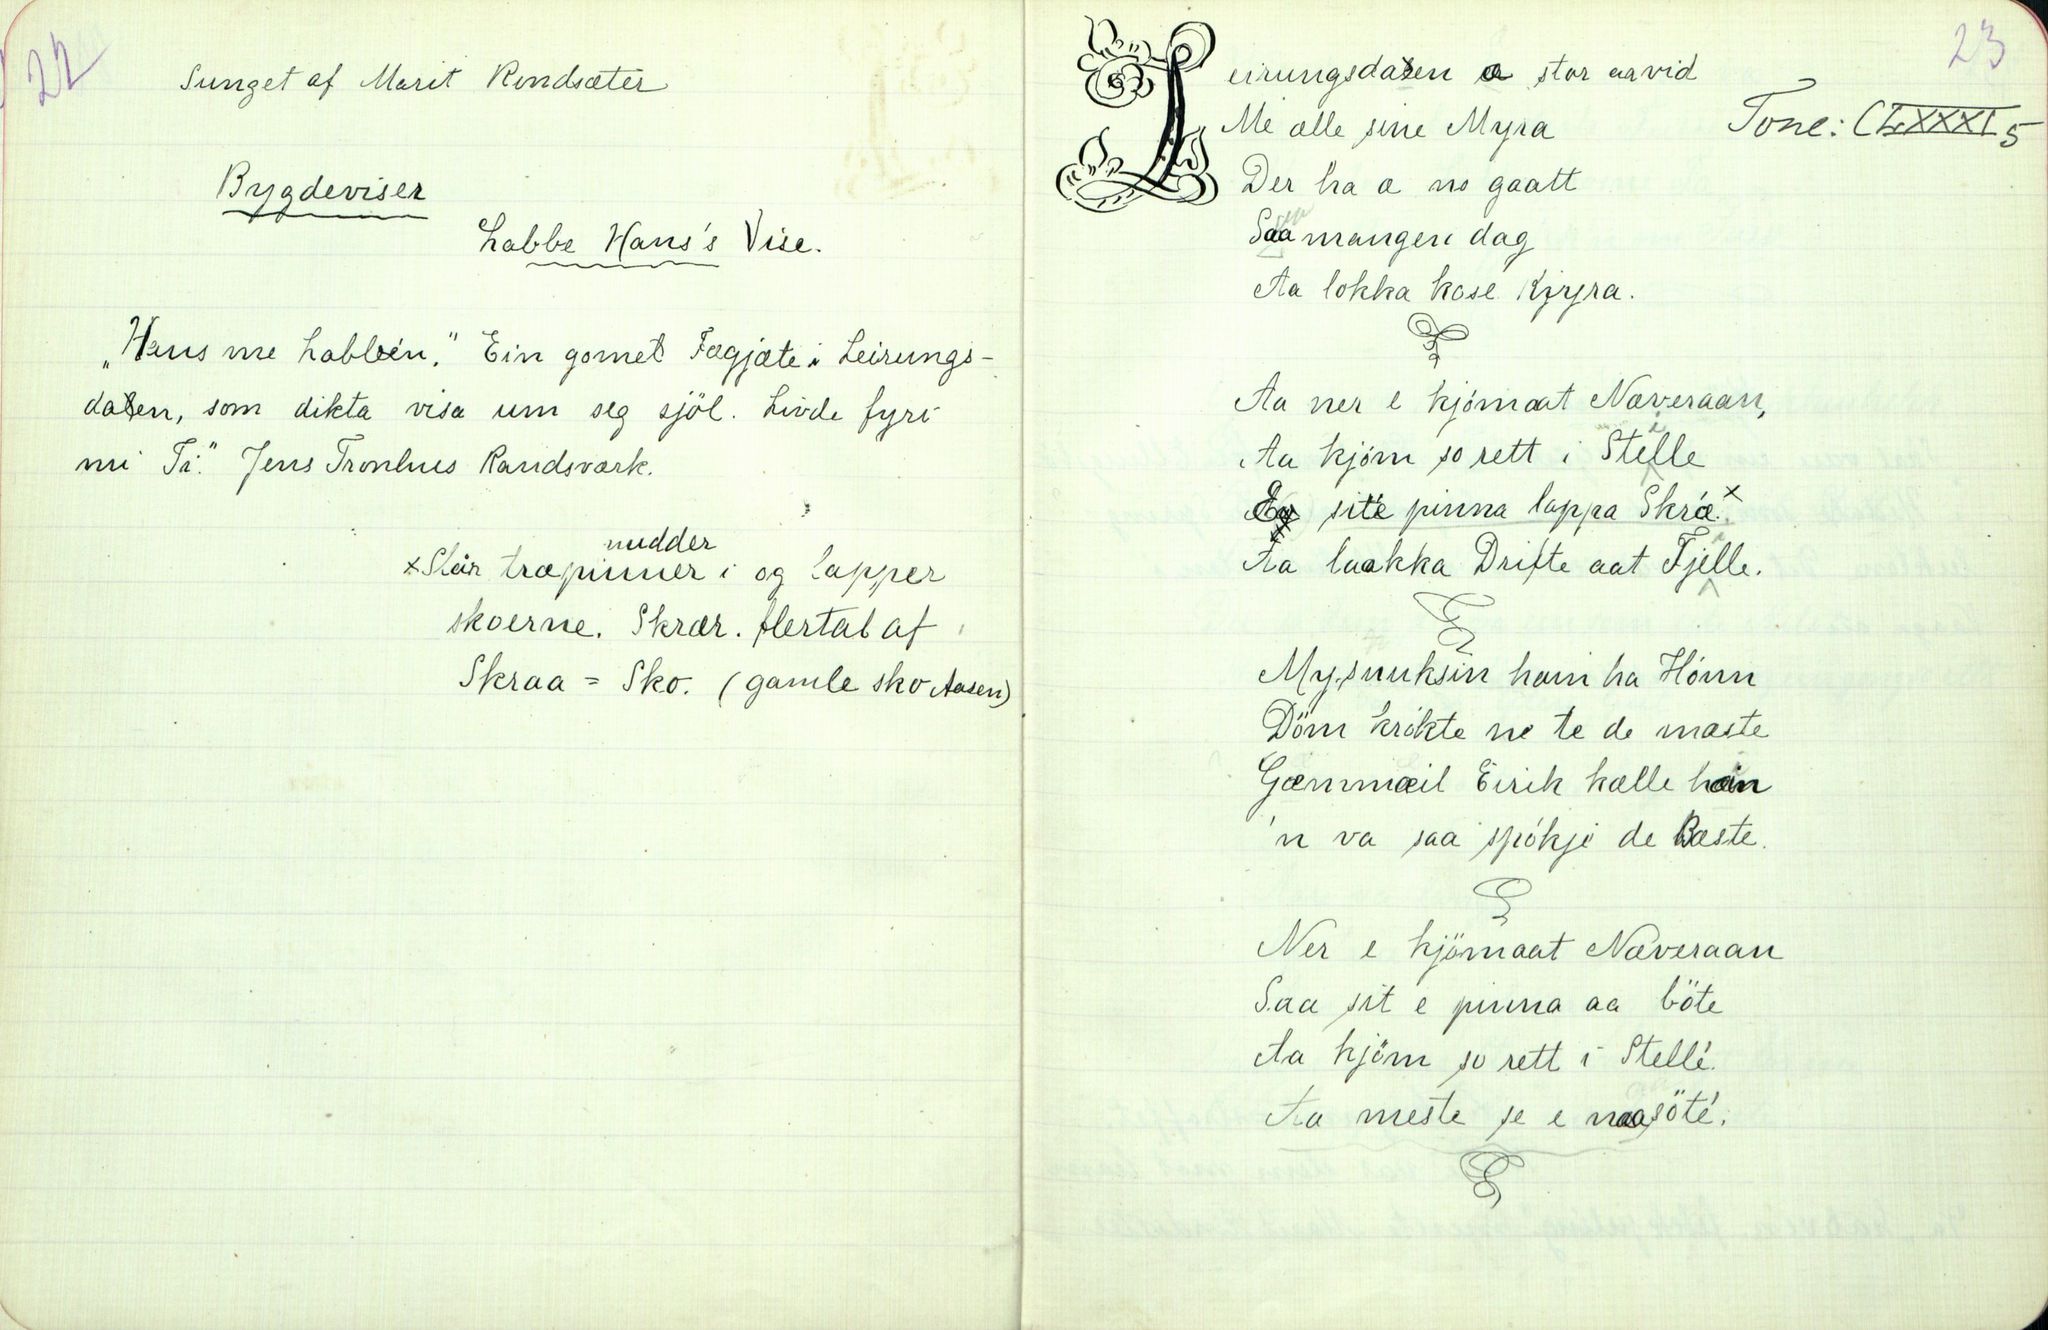 22
Sunget af Marit Rindsæter
Bygdeviser
Labbe Hans's Vise.
„Hans me Labbein." Ein gomel Fægjæte i Leirungs-
dalen, som dikta visa um seg sjöl. Livde fyri
mi Ti." Jens Tronhus Randsværk.
nudder
x Slår træpinner i og lapper
skoerne. Skrær. flertal af
Skraa = Sko. (gamle sko Aasen)
23
Leirungsdalen æ stor aa vid
Tone: CLXXXI 5
Me alle sine Myra
Der ha æ no gaatt
Saa mangen dag
Aa lokka kose Kjyra.
Aa ner e kjömaat Næveraan,
Aa kjöm so rett i Stelle
Eg site pinna lappa Skræ x
Aa laakka Drifte aat Fjelle.
Mysuuksin hain ha Hónn
Döm krókte ne te de maste
Gammæil Eirik kælle hain
'n va saa spókje de Bæste.
Ner e kjömaat Næveraan
Saa sit e pinna aa böte
Aa kjöm so rett i Stellé.
Aa meste se e naasöté.